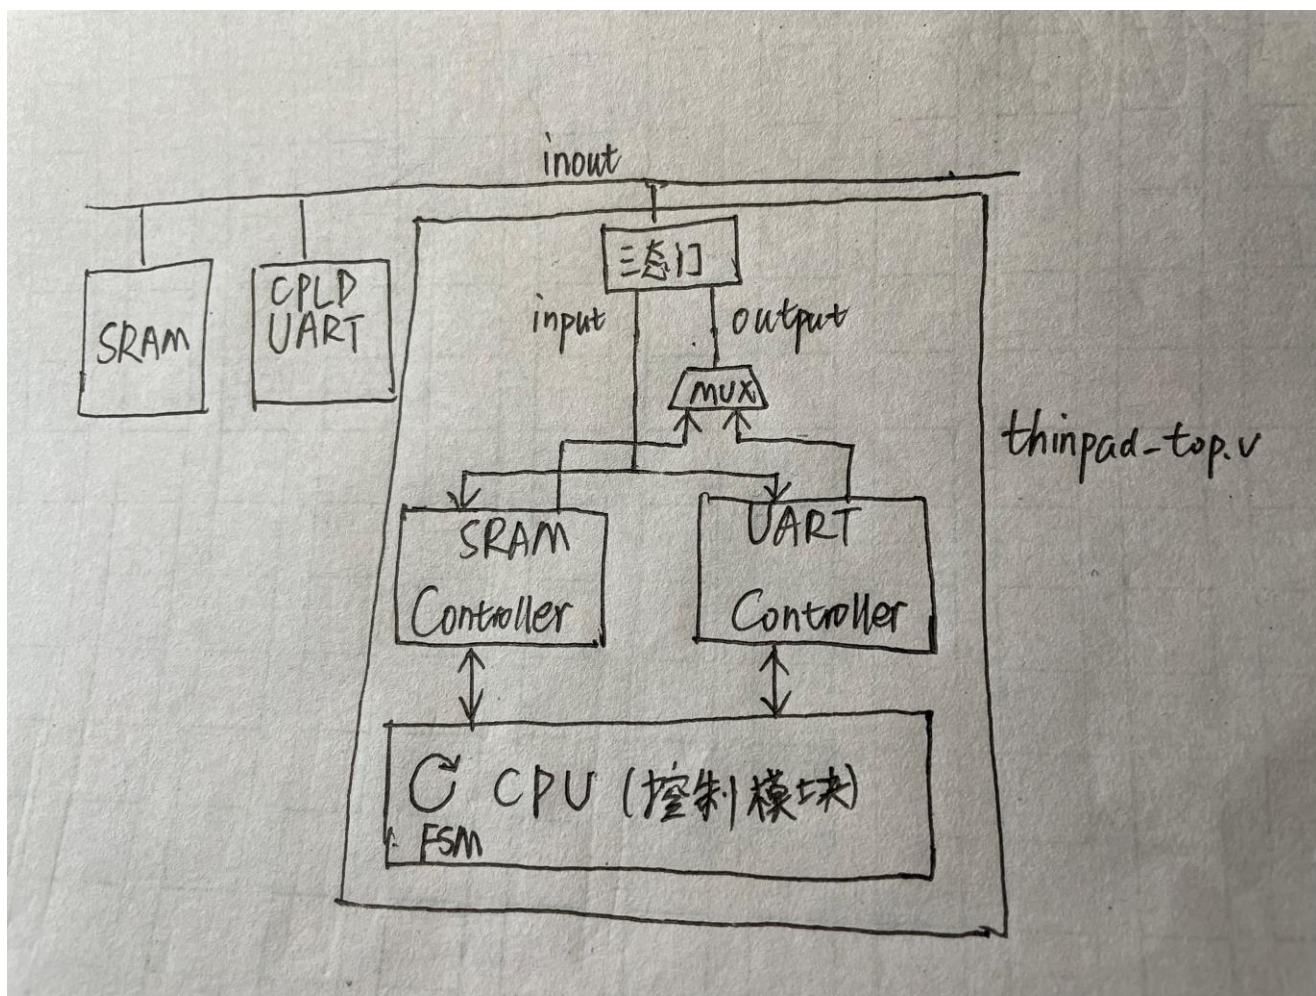 inout
三态门
CPLD
UART
SRAM
input
output
mux
thinpad-top.v
SRAM
Controller
UART
Controller
CPU (控制模块)
FSM